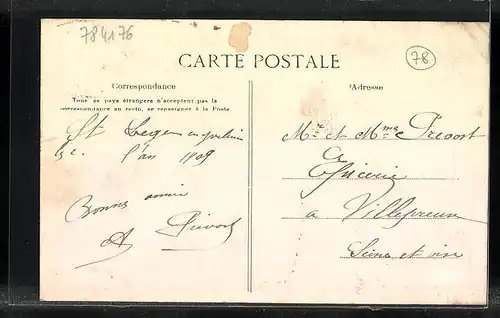 784176
78
CARTE POSTALE
Correspondance
Tous les pays étrangers n'acceptent pas la
correspondance au recto, se renseigner à la Poste.
St Leger en yvelines
l'an 1909
Bonne année
A Prevost
Adresse
Mr et Mme Prevost
Epicerie
a Villepreux
Seine et oise